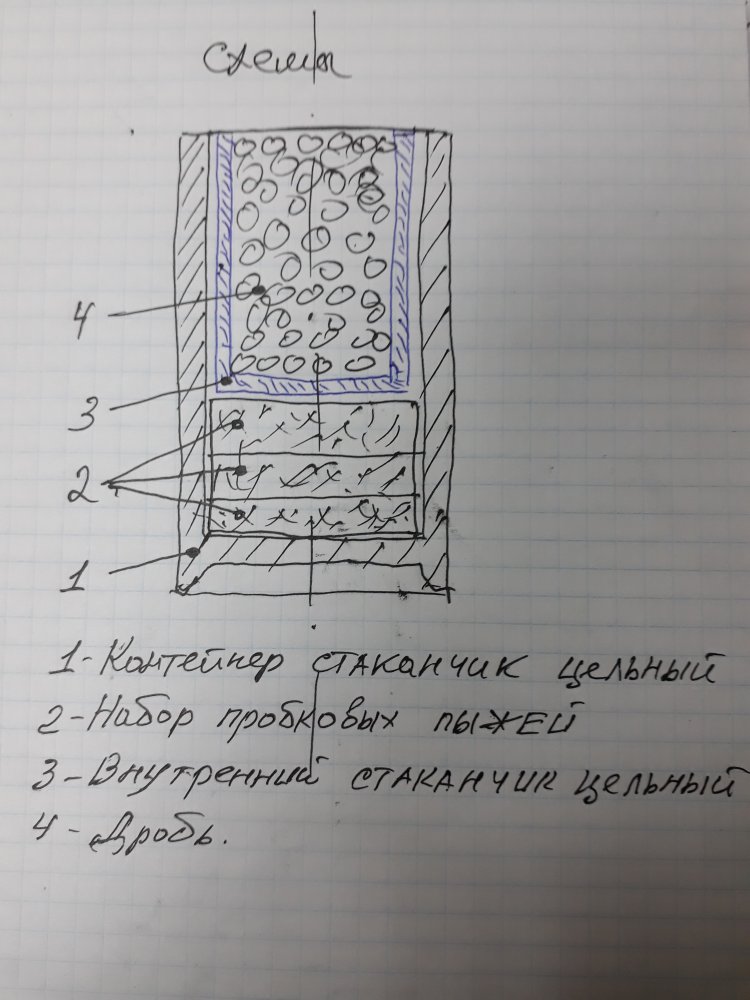 Схема
4
3
2
1
1-Контейнер стаканчик цельный
2-Набор пробковых пыжей
3-Внутренний стаканчик цельный
4-Дробь.